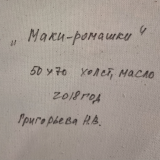 „Маки-ромашки"
50х70 холст, масло
2018 год
Григорьева Н.В.